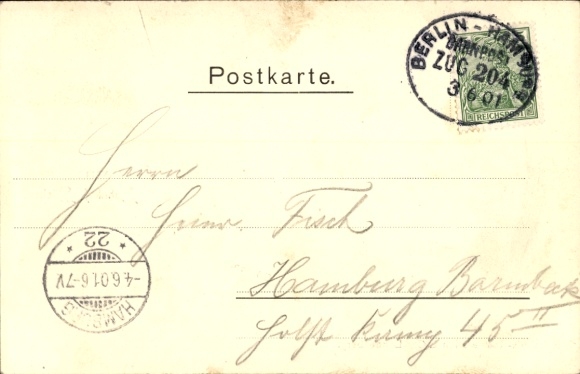 Postkarte.
BERLIN - HAMBURG
BAHNPOST
ZUG 204
3 6 01
REICHSPOST
Herrn
Heinr. Fisch
Hamburg Barmbek
Holst Kamp 45 II
HAMBURG
-4.6.01.6-7V.
* 22 *